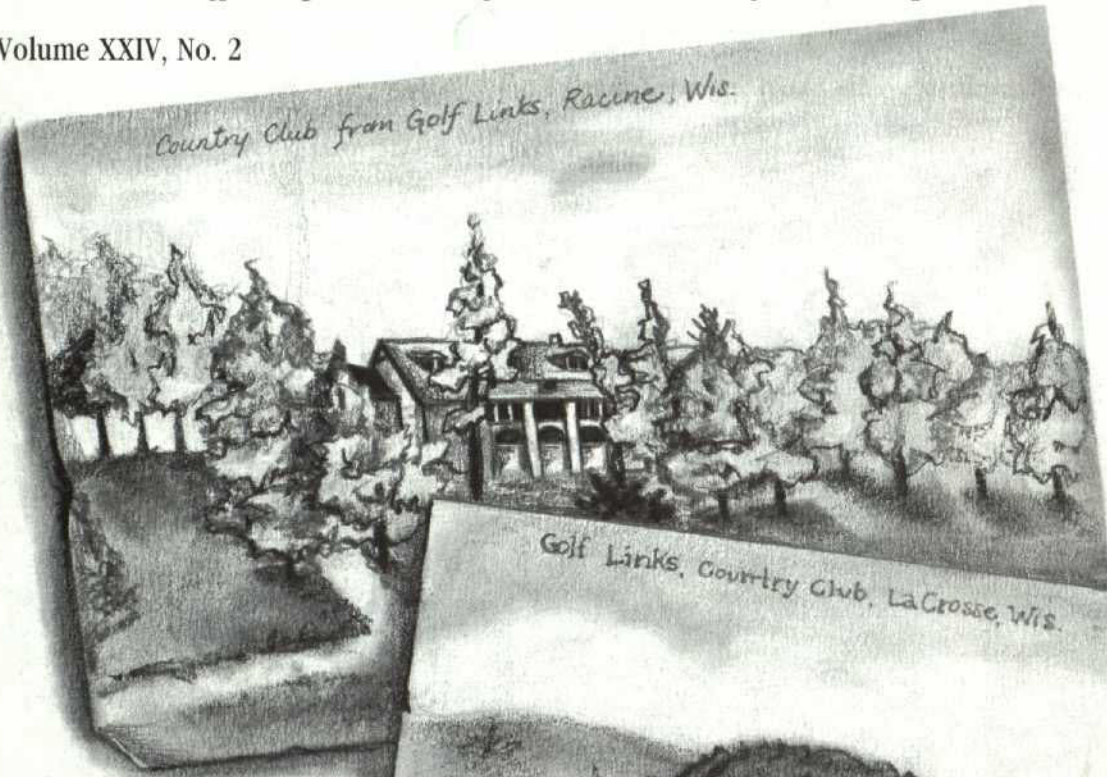 Volume XXIV, No. 2
Country Club from Golf Links, Racine, Wis.
Golf Links, Country Club, LaCrosse, Wis.